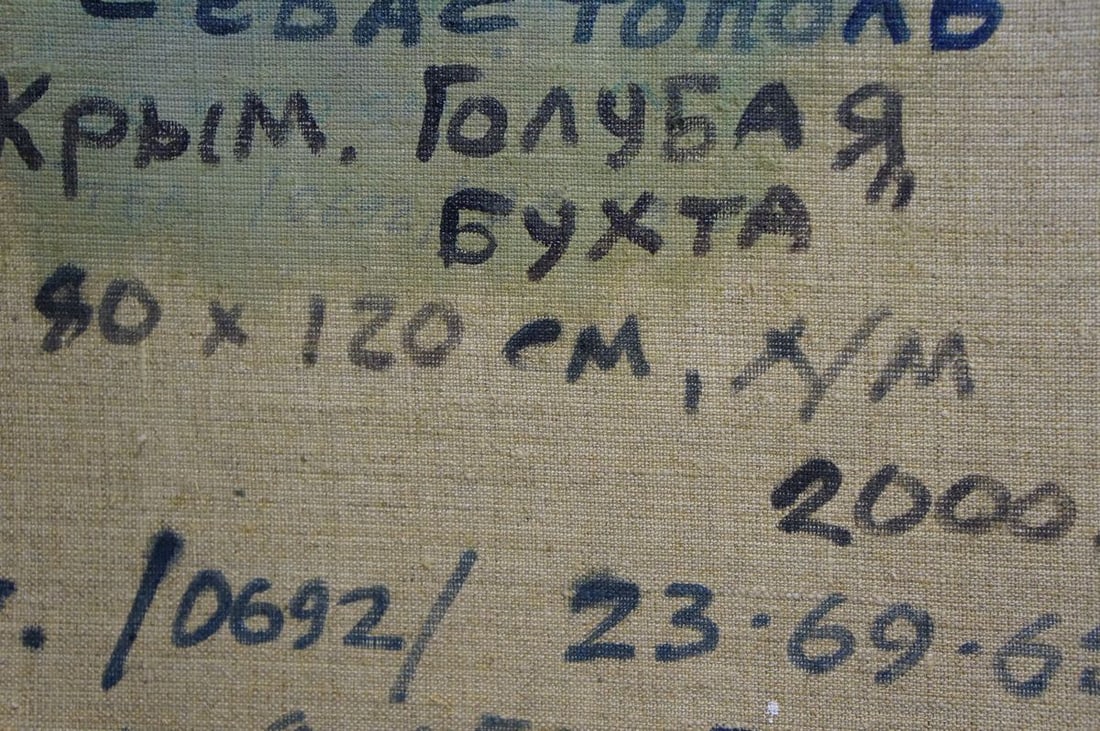 Севастополь
Крым. Голубая"
Бухта
80 х 120 см, х/м
2000.
. /0692/ 23.69.6